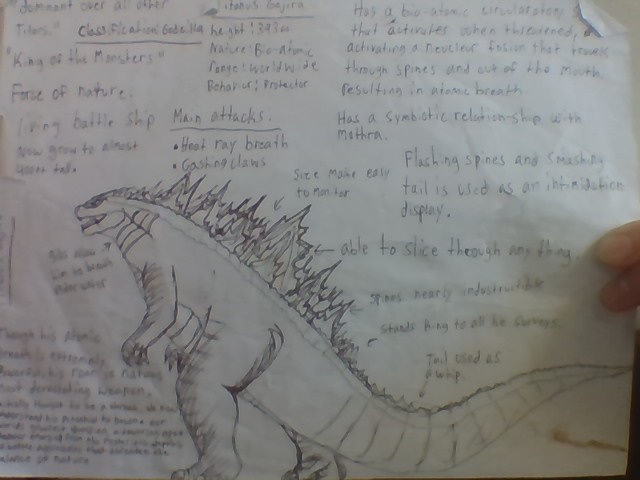 "dominant over all other
Titans." Classification: Godzilla
"King of the Monsters"
Force of nature.
living battle ship
Now grow to almost
400ft tall.
Titanus Gojira
height: 393m
Nature: Bio-Atomic
range: worldwide
Behavior: Protector
Main attacks.
• Heat ray breath
• Gashing claws
Has a bio-atomic circulatory
that activates when threatened,
activating a neuclear fusion that travels
through spines and out of the mouth
resulting in atomic breath.
Has a symbiotic relation-ship with
Mothra.
Size make easy
to monitor
Flashing spines and smashing
tail is used as an intimidation
display.
able to slice through any thing.
Spines nearly indestructible
stands king to all he surveys.
Tail used as
whip.
Gills allow
him to breath
under water
Though his atomic
breath is extremely
Powerful, his roar is
most devastating weapon.
balance of nature